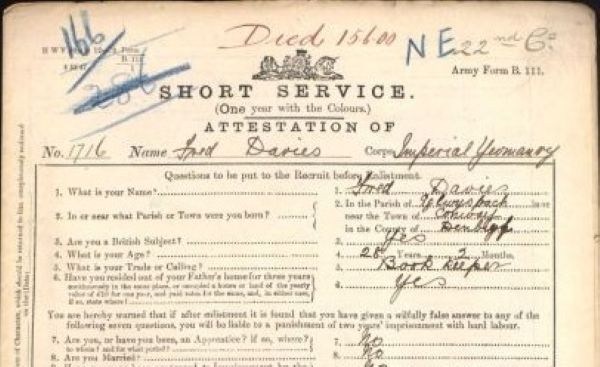 166
Died 15600
N E 22nd Co.
286
B. 111.
Army Form B. 111.
SHORT SERVICE.
(One year with the Colours.)
ATTESTATION OF
No. 1716 Name Fred Davies Corps Imperial Yeomanry
Questions to be put to the Recruit before Enlistment.
1. What is your Name? 1. Fred Davies
2. In or near what Parish or Town were you born? 2. In the Parish of
near the Town of Conway
in the County of Denbigh
3. Are you a British Subject? 3. Yes
4. What is your Age? 4. 28 Years 2 Months.
5. What is your Trade or Calling? 5. Book keeper
6. Have you resided out of your Father's home for three years 6. Yes
continuously in the same place, or occupied a house or land of the yearly
value of £10 for one year, and paid rates for the same, and, in either case,
if so, state where?
You are hereby warned that if after enlistment it is found that you have given a wilfully false answer to any of the
following seven questions, you will be liable to a punishment of two years' imprisonment with hard labour.
7. Are you, or have you been, an Apprentice? If so, where? 7. No
to whom? and for what period?
8. Are you Married? 8. No
of Character, which should be returned to him conspicuously endorsed
on the Date.)